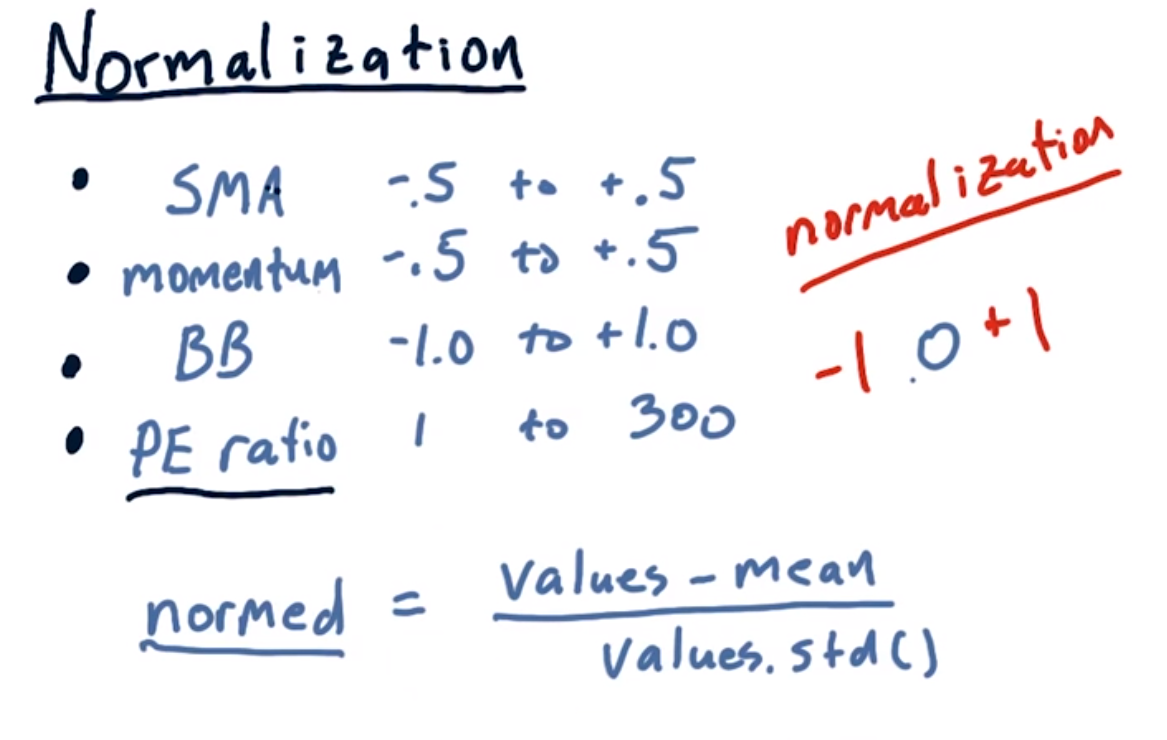 Normalization
• SMA -.5 to +.5
• momentum -.5 to +.5
• BB -1.0 to +1.0
• PE ratio 1 to 300
normalization
-1 0 +1
normed = values - mean
values.std()